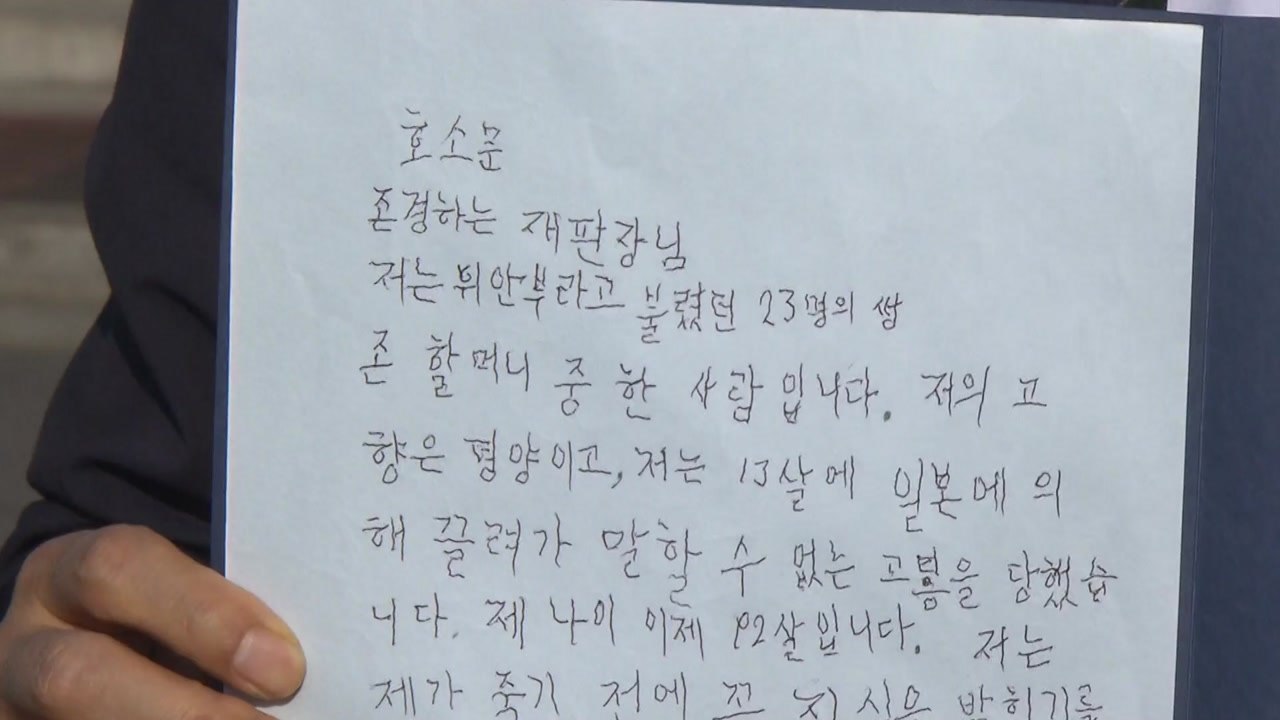 호소문
존경하는 재판장님
저는 뷔안부라고 불렸던 23명의 쌩
존 할머니 중 한 사람입니다. 저의 고
향은 평양이고, 저는 13살에 일본에 의
해 끌려가 말할 수 없는 고통을 당했습
니다. 제 나이 이제 92살입니다. 저는
제가 죽기 전에 꼬 밝히기를